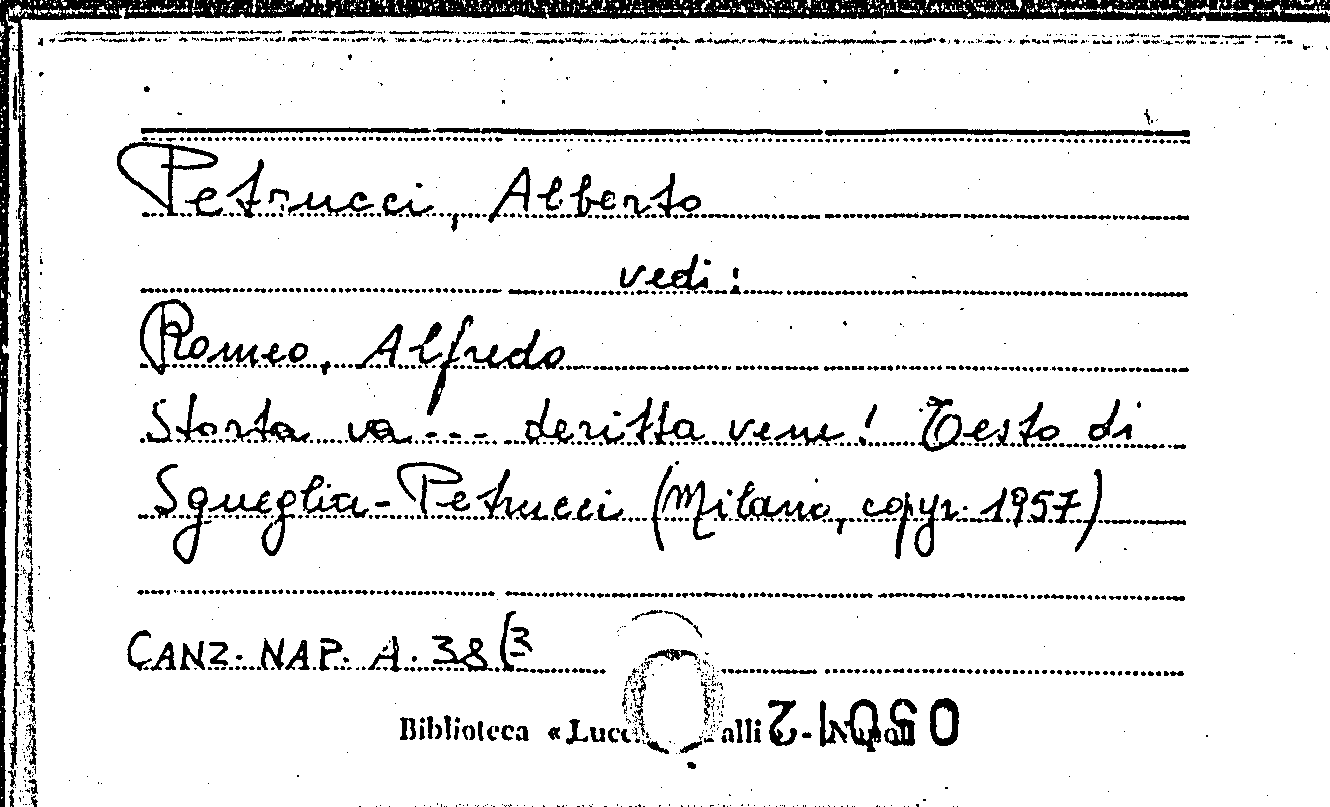 Petrucci, Alberto
vedi:
Romeo, Alfredo
Storta va... deritta vene! Testo di
Sgueglia-Petrucci (Milano, copyr. 1957)
CANZ. NAP. A. 38(3
Biblioteca «Lucc alli - Napoli